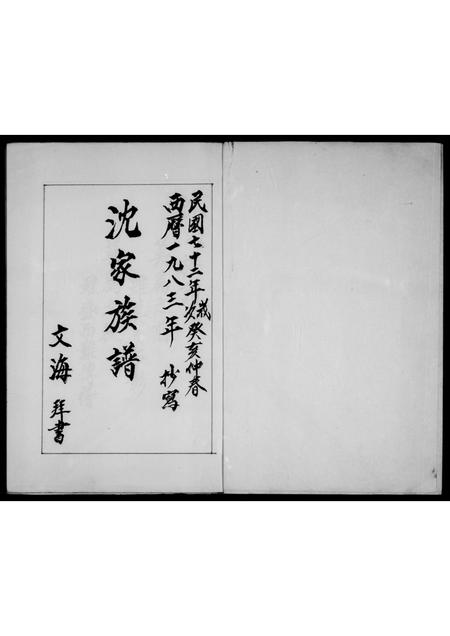 民國七十二年歲次癸亥仲春
西曆一九八三年 抄寫
沈家族譜
文海 拜書